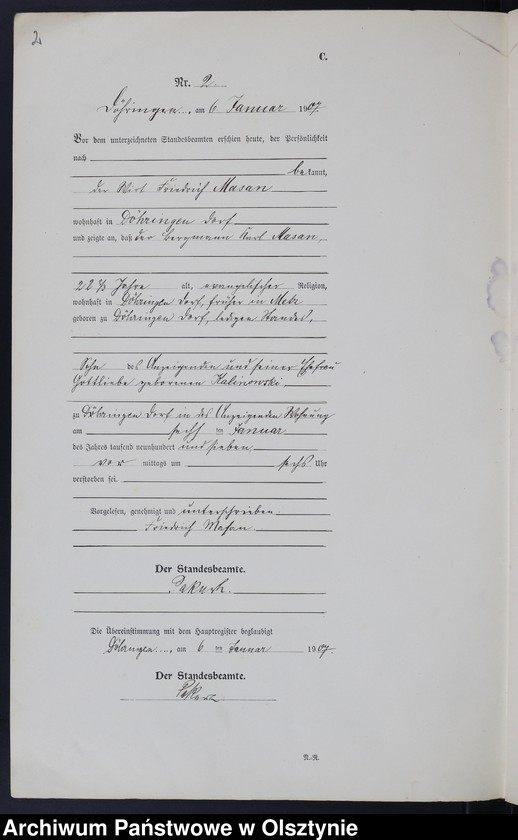 2
C.
Nr. 2.
Döhringen, am 6 Januar 1907
Vor dem unterzeichneten Standesbeamten erschien heute, der Persönlichkeit
nach
bekannt,
der Wirt Friedrich Masan
wohnhaft in Döhringen Dorf
und zeigte an, daß der Bergmann Karl Masan,
22 ½ Jahre alt, evangelischer Religion,
wohnhaft in Döhringen Dorf, früher in
geboren zu Döhringen Dorf, ledigen Standes,
Sohn des Anzeigenden und seiner Ehefrau
Gottliebe geborenen Kalinowski
zu Döhringen Dorf in des Anzeigenden Wohnung
am sechs ten Januar
des Jahres tausend neunhundert und sieben
vor mittags um sechs Uhr
verstorben sei.
Vorgelesen, genehmigt und unterschrieben.
Friedrich Masan
Der Standesbeamte.
Die Übereinstimmung mit dem Hauptregister beglaubigt
Döhringen, am 6 ten Januar 1907.
Der Standesbeamte.
R.-R.
Archiwum Państwowe w Olsztynie